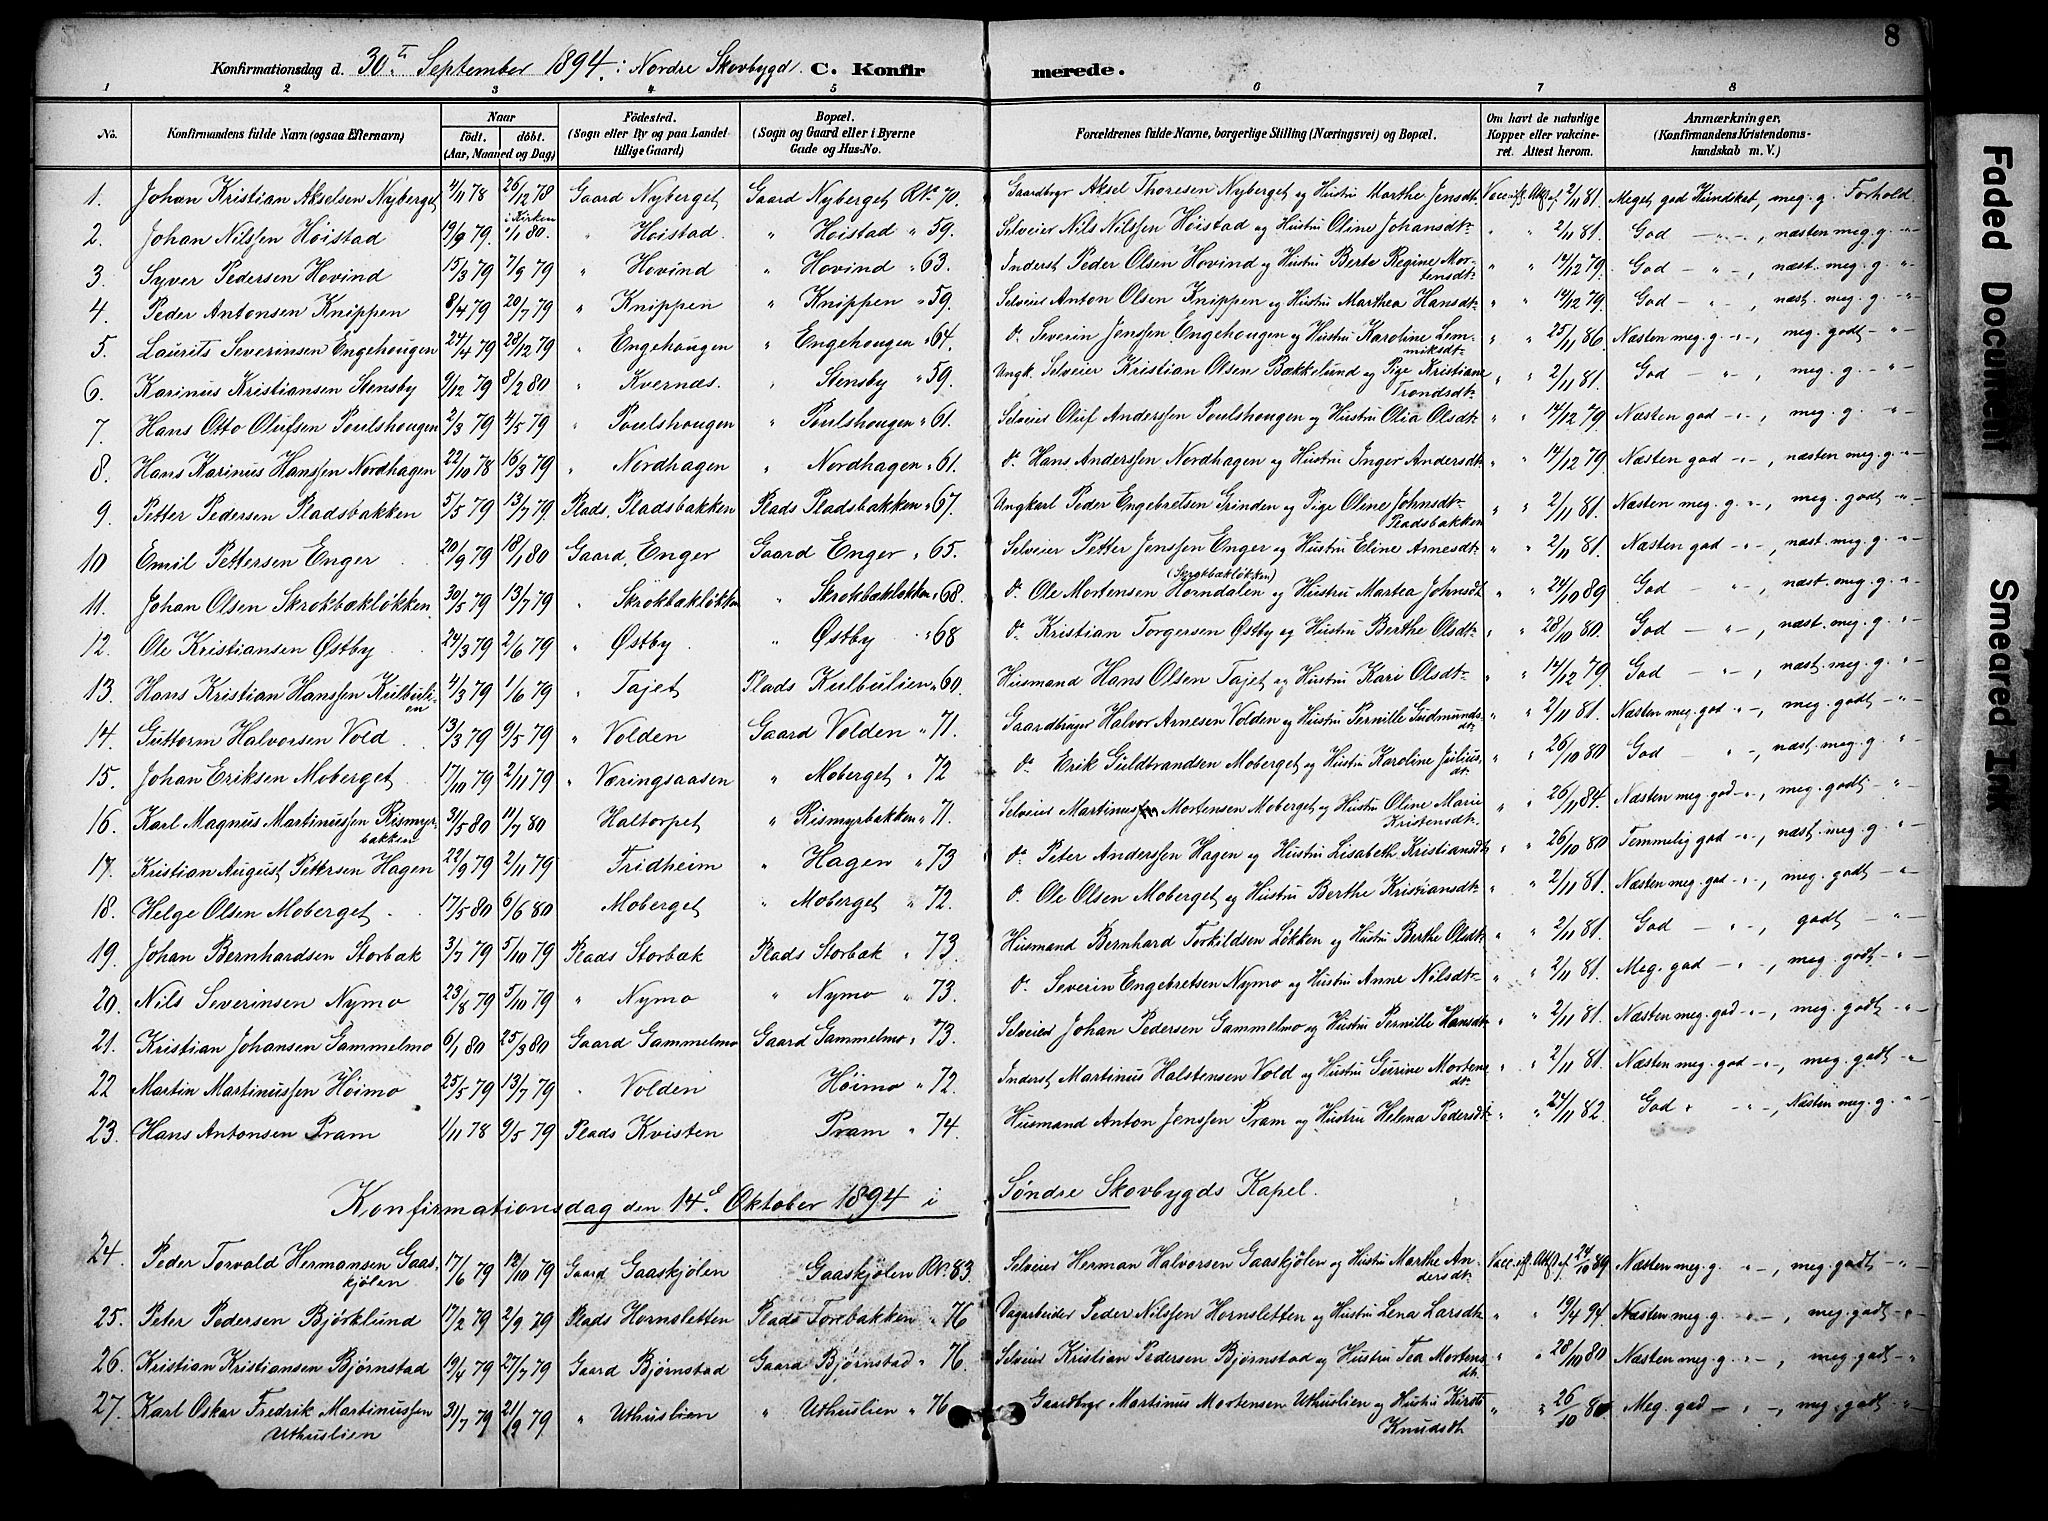 8
Konfirmationsdag d. 30te September 1894 i Nordre Skovbygd. C. Konfirmerede.
1 2 3 4 5 6 7 8
No. Konfirmandens fulde Navn (ogsaa Efternavn) Naar födt. döbt. (Aar, Maaned og Dag) Födested. (Sogn eller By og paa Landet tillige Gaard) Bopæl. (Sogn og Gaard eller i Byerne Gade og Hus-No. Forældrenes fulde Navne, borgerlige Stilling (Næringsvei) og Bopæl. Om havt de naturlige Kopper eller vakcineret. Attest herom. Anmærkninger. (Konfirmandens Kristendomskundskab m. V.)
1. Johan Kristian Akselsen Nyberget 4/11 78 26/12 78 i Kirken Gaard Nyberget Gaard Nyberget Rk. 70. Gaardbrgr Aksel Thoresen Nyberget og Hustru Marthe Jensdt. 2/11 81. Meget god Kundskab, meg. g. Forhold
2. Johan Nilssen Höistad 19/9 79. 1/1 80. " Höistad. " Höistad " 59. Selveier Nils Nilssen Höistad og Hustru Oline Johansdt. " " 2/11 81. God — " —, næsten meg. g. " —
3. Syver Pedersen Hovind 15/3 79 7/9 79 " Hovind " Hovind " 63. Inderst Peder Olsen Hovind og Hustru Berte Regine Mortensdt. " " 14/12 79. God — " —, næst. meg. g. " —
4. Peder Antonsen Knippen 8/4 79 20/7 79 " Knippen " Knippen " 59. Selveier Anton Olsen Knippen og Hustru Marthea Hansdt. " " 14/12 79. God — " —, næst. meg. g. " —
5. Laurits Severinsen Engehougen 24/4 79 28/12 79 " Engehougen " Engehougen " 64. do. Severin Jenssen Engehougen og Hustru Karoline Lemmiksdt. " " 25/11 86. Næsten meg. g. " —, meg. godt — " —
6. Karinus Kristiansen Stensby 9/12 79 8/2 80 " Kvernæs. " Stensby " 59. Ungk. Selveier Kristian Olsen Bækkelund og Pige Kristiane Trondsdt. " " 2/11 81. God — " —, meg. g. — " —
7. Hans Otto Olufsen Poulshougen 2/3 79 4/5 79 " Poulshougen " Poulshougen " 61. Selveier Oluf Anderssen Poulshougen og Hustru Olia Olsdt. " " 14/12 79 Næsten god — " —, meg. g. — " —
8. Hans Karinus Hanssen Nordhagen 22/10 78 16/3 79 " Nordhagen " Nordhagen " 61. do. Hans Anderssen Nordhagen og Hustru Inger Andersdt. " " 14/12 79. Næsten god — " —, næsten meg. g. " —
9. Petter Pedersen Pladsbakken 5/5 79 13/7 79. Plads. Pladsbakken Plads Pladsbakken " 67. Ungkarl Peder Engebretsen Grinden og Pige Oline Johnsdt. Pladsbakken " " 2/11 81. Næsten meg. g. " —, meg. godt " —
10 Emil Pettersen Enger. 20/9 79 18/1 80 Gaard. Enger Gaard Enger " 65. Selveier Petter Jenssen Enger og Hustru Eline Arnesdt. " " 2/11 81. Næsten god — " —, næst. meg. g. " —
11. Johan Olsen Skrokbæklökken. 30/5 79 13/7 79 " Skrökbæklökken " Skrokbæklökken " 68. do. Ole Mortensen Horndalen (Skrokbæklökken) og Hustru Martea Johnsdt. " " 24/10 89 God " —, næst. meg. g. " —
12. Ole Kristiansen Østby. 24/3 79 2/6 79 " Østby " Østby " 68 do. Kristian Torgersen Østby og Hustru Berthe Olsdt. " " 28/10 80. God — " —, næsten meg. g. " —
13. Hans Kristian Hanssen Kulbulien 4/3 79 1/6 79 " Tajet Plads Kulbulien " 60. Husmand Hans Olsen Tajet og Hustru Kari Olsdt. " " 14/12 79 God — " —, næst. meg. g. " —
14. Guttorm Halvorsen Vold 13/3 79 9/5 79 " Volden Gaard Volden " 71. Gaardbruger Halvor Arnesen Volden og Hustru Pernille Gudmundsdt. " " 2/11 81. Næsten meg. god " —, meg. godt " —
15. Johan Eriksen Moberget. 17/10 79 2/11 79 " Væringsaasen " Moberget " 72 do. Erik Guldbrandsen Moberget og Hustru Karoline Juliusdt. " " 26/10 80 God " —, næst. meg. g. " —
16. Karl Magnus Martinussen Rismyrbakken 31/5 80 11/7 80 " Haltorpet " Rismyrbakken " 71. Selveier Martinus Mortensen Moberget og Hustru Oline Marie Kristensdt. " " 26/11 84. Næsten meg. god " —, meg. godt " —
17. Kristian August Pettersen Hagen 22/9 79 2/11 79 " Fridheim " Hagen " 73 do. Peter Anderssen Hagen og Hustru Lisabeth Kristiansdt. " " 26/10 80 Temmelig god " —, næst. meg. g. " —
18. Helge Olsen Moberget. 17/5 80 6/6 80 " Moberget " Moberget " 72. do. Ole Olsen Moberget og Hustru Berthe Kristiansdt. " " 2/11 81. Næsten meg. god " —, meg. godt " —
19. Johan Bernhardsen Storbæk 3/7 79 5/10 79 Plads Storbæk Plads Storbæk " 73. Husmand Bernhard Torkildsen Løkken og Hustru Berthe Olsdt. " " 2/11 81 God — " —, godt — " —
20. Nils Severinsen Nymo 23/8 79 5/10 79 " Nymo " Nymo " 73. do. Severin Engebretsen Nymo og Hustru Anne Nilsdt. " " 2/11 81. Meg. god — " —, meg. godt " —
21. Kristian Johansen Gammelmo 6/1 80 25/3 80 Gaard Gammelmo Gaard Gammelmo " 73. Selveier Johan Pedersen Gammelmo og Hustru Pernille Hansdt. " " 2/11 81. Næsten meg. god " —, meg. godt " —
22 Martin Martinussen Höimo 25/5 79 13/7 79 " Volden Höimo " 72. Inderst Martinus Halstensen Vold og Hustru Gurine Mortensdt. " " 2/11 81. Næsten meg. god " —, meg. godt " —
23. Hans Antonsen Pram 1/11 78 9/5 79 Plads Kvisten Pram " 74. Husmand Anton Jenssen Pram og Hustru Helena Pedersdt. " " 24/11 82 God " " —, Næsten meg. g. " —
Konfirmationsdag den 14de Oktober 1894 i Søndre Skovbygds Kapel.
24. Peder Torvald Hermansen Gaaskjölen 17/6 79 12/10 79 Gaard Gaaskjölen Gaaskjölen Rk. 83. Selveier Herman Halvorsen Gaaskjölen og Hustru Marthe Andersdt. 24/10 89 Næsten meg. g. " —, meg. godt " —
25. Peter Pedersen Björklund 17/2 79 2/9 79 Plads Hornsletten Plads Torebakken " 76 Dagarbeider Peder Nilssen Hornsletten og Hustru Lena Larsdt. " " 19/4 94. Næsten meg. g. " —, meg. godt " —
26. Kristian Kristiansen Bjørnstad 19/4 79 27/7 79 Gaard Bjørnstad Gaard Bjørnstad " 76. Selveier Kristian Pedersen Bjørnstad og Hustru Tea Mortensdt. " " 28/10 80 Næsten meg. g. " —, meg. godt " —
27. Karl Oskar Fredrik Martinussen Uthuslien 31/7 79 21/9 79 " Uthuslien " Uthuslien " 76 Gaardbrgr Martinus Mortensen Uthuslien og Hustru Kirsti Knudsdt. " " 26/10 80 Meg. god — " —, meg. godt — " —
Faded Document
Smeared Ink